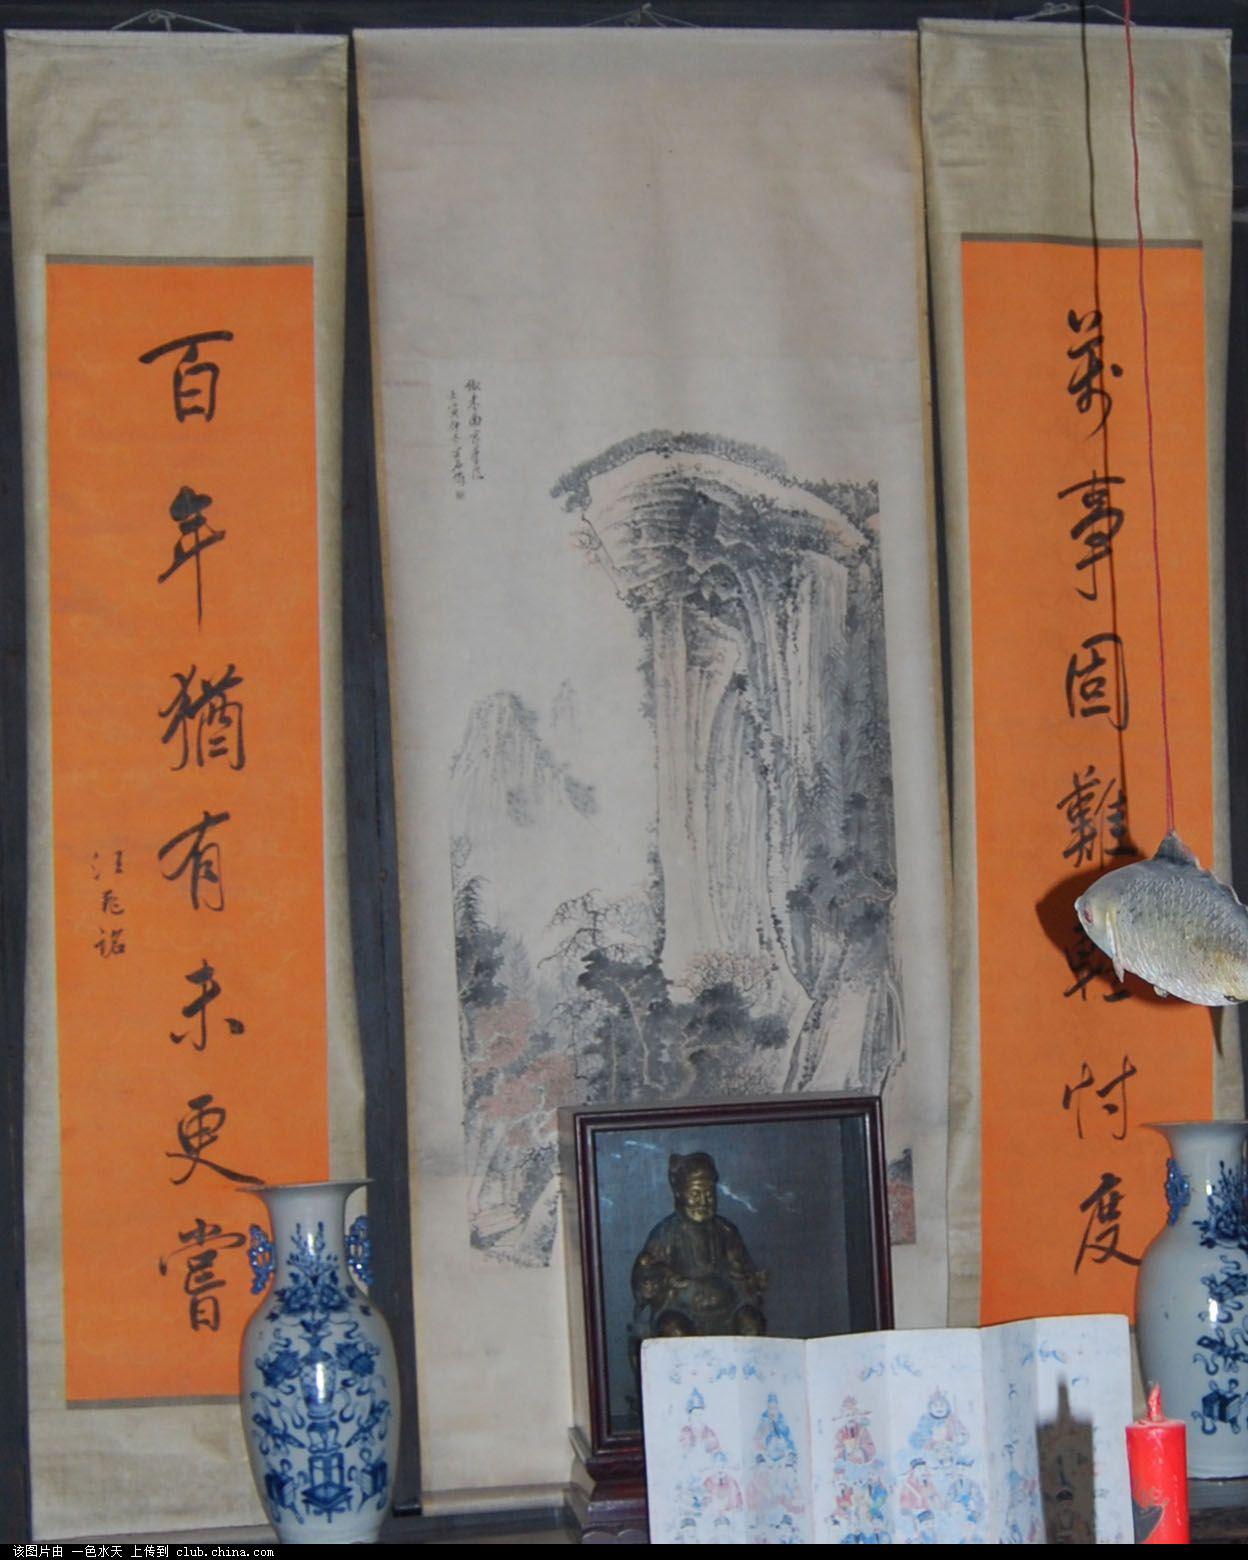 萬事固難輕忖度
百年猶有未更嘗
汪兆銘
该图片由 一色水天 上传到 club.china.com